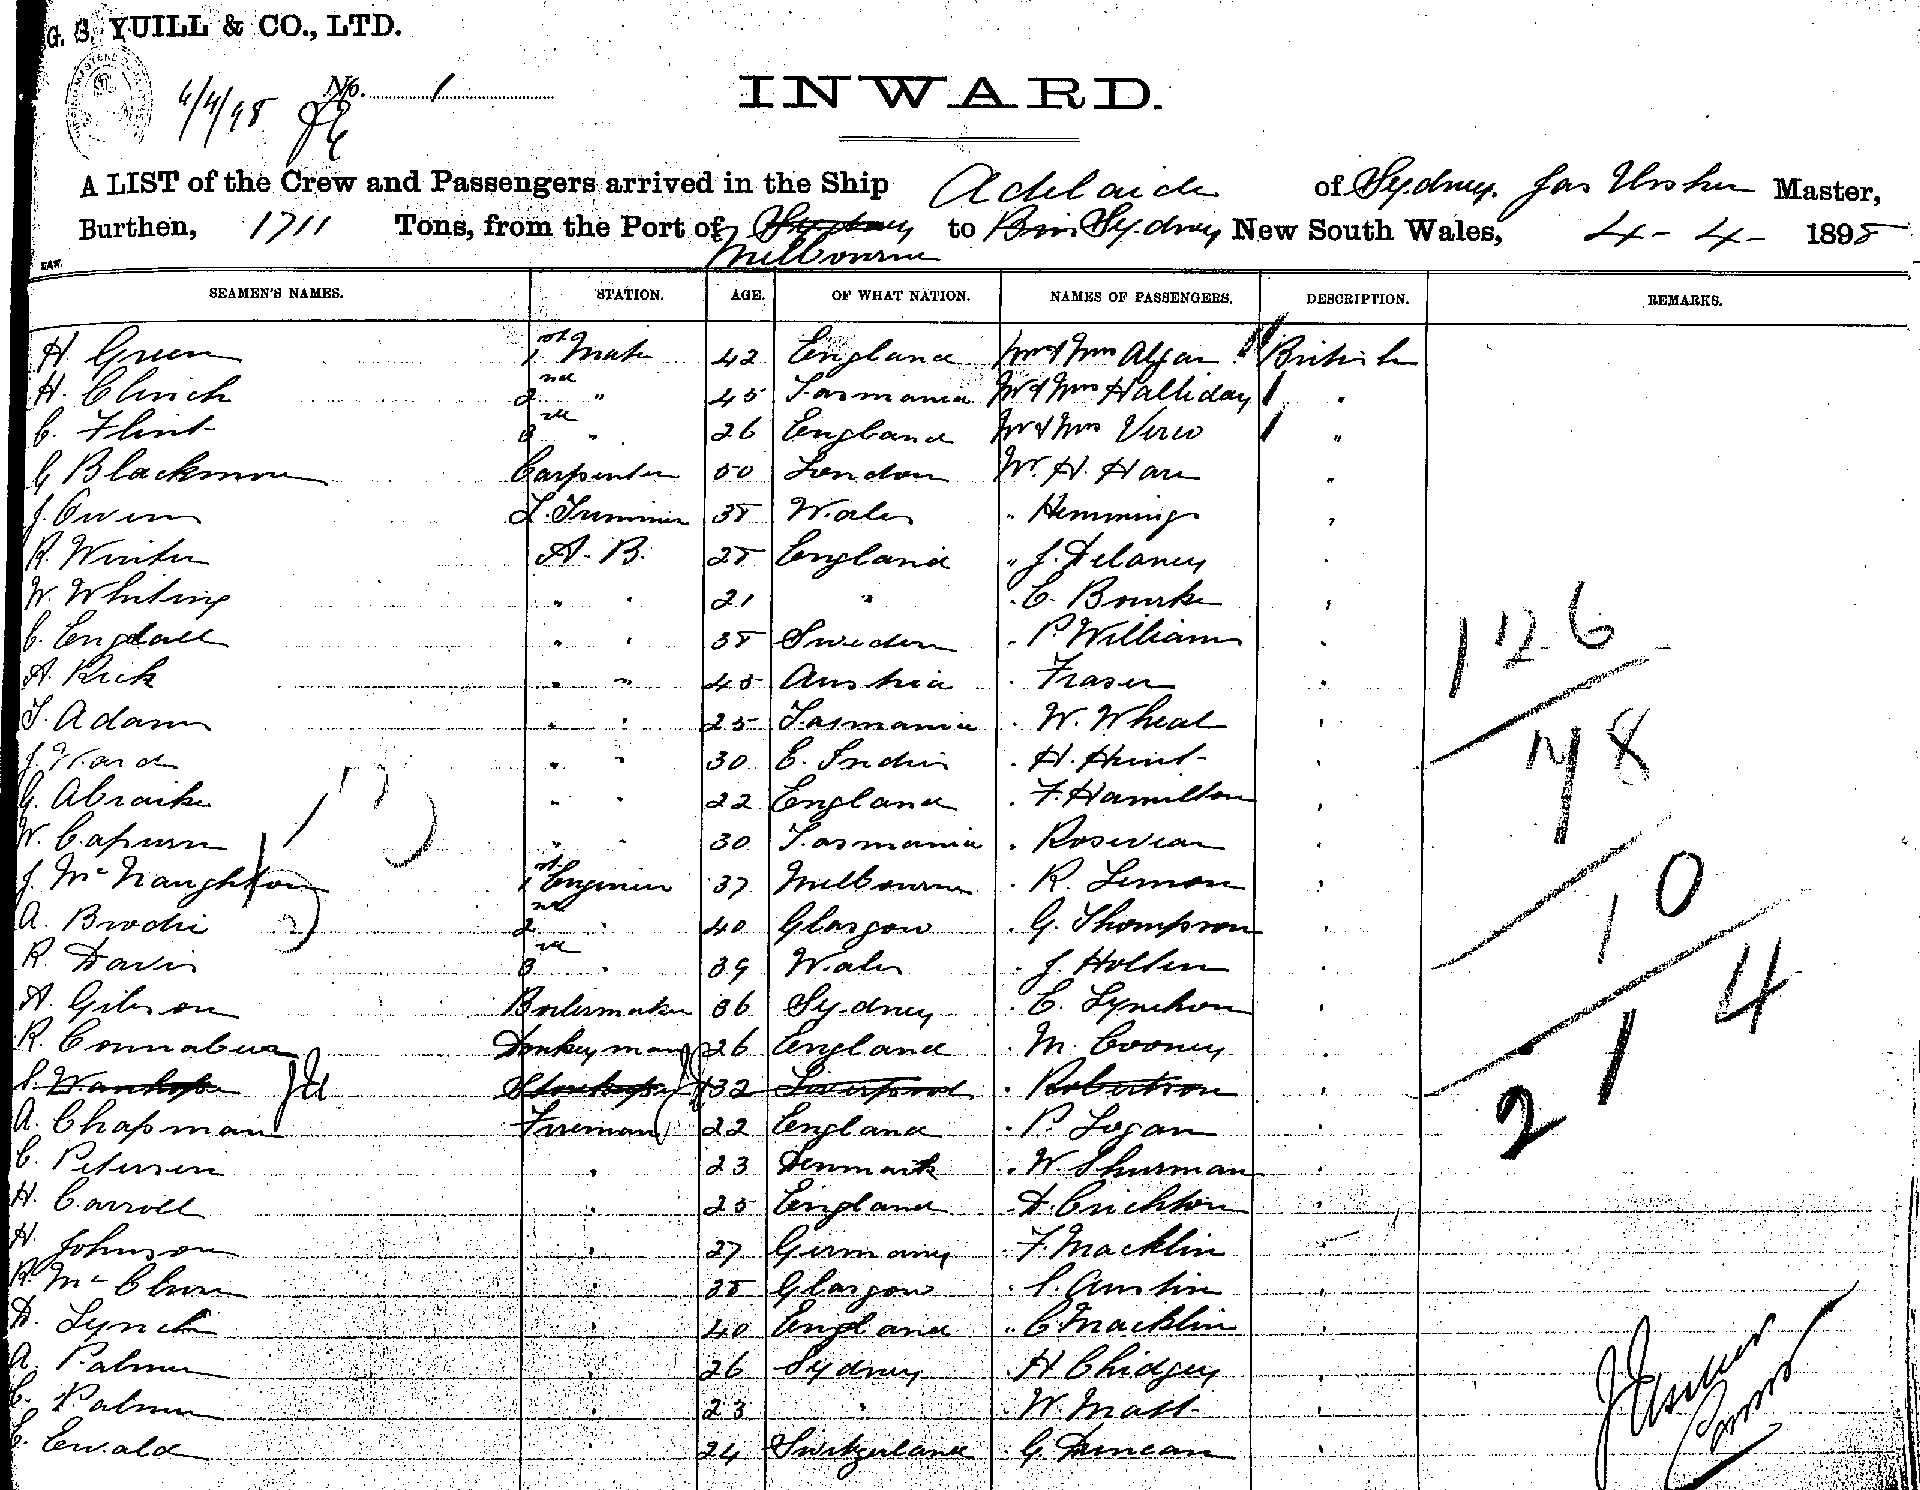 G. S. YUILL & CO., LTD.
No. 1
INWARD.
A LIST of the Crew and Passengers arrived in the Ship Adelaide of Sydney. Jas Ussher Master,
Burthen, 1711 Tons, from the Port of Sydney Melbourne to Bris Sydney New South Wales, 4-4-1898
SEAMEN'S NAMES. STATION. AGE. OF WHAT NATION. NAMES OF PASSENGERS. DESCRIPTION. REMARKS.
H. Green 1st Mate 42 England Mr & Mrs Algar British
H. Clinch 2nd " 45 Tasmania Mr & Mrs Halliday "
C. Flint 3rd " 26 England Mr & Mrs Verco "
G Blackmore Carpenter 50 London Mr. H. Hare "
J. Owen L. Trimmer 38 Wales " Hemmings "
R. Winter A. B. 28 England " J. Delaney "
W. Whiting " " 21 " " C. Bourke "
C. Engdall " " 38 Sweden " P. Williams "
A. Rick " " 45 Austria " Fraser "
T. Adams " " 25 Tasmania " W. Wheat "
J. Ward " " 30 E. Indies " H. Hunt "
G. Abraike " " 22 England " F. Hamilton "
W. Capurn " " 30 Tasmania " Rosevear "
J. McNaughton 1st Engineer 37 Melbourne " R. Lemon "
A. Brodie 2nd " 40 Glasgow " G. Thompson "
R. Davis 3rd " 39 Wales " J. Holten "
A. Gibson Boilermaker 36 Sydney " C. Lynchon "
R. Connabeer Donkeyman 26 England " M. Cooney "
S. Wanhope Storekeeper 32 Liverpool " Robertson "
A. Chapman Fireman 22 England " P. Logan "
C. Petersen " 23 Denmark " W. Thurman "
H. Carroll " 25 England " D. Crichton "
H. Johnson " 27 Germany " F. Macklin "
R. McClure " 38 Glasgow " S. Austin "
D. Lynch " 40 England " C. Macklin "
A. Palmer " 26 Sydney " H Chidgey "
C. Palmer " 23 " " W. Matt "
E. Ewald " 24 Switzerland " G. Duncan "
126
78
10
214